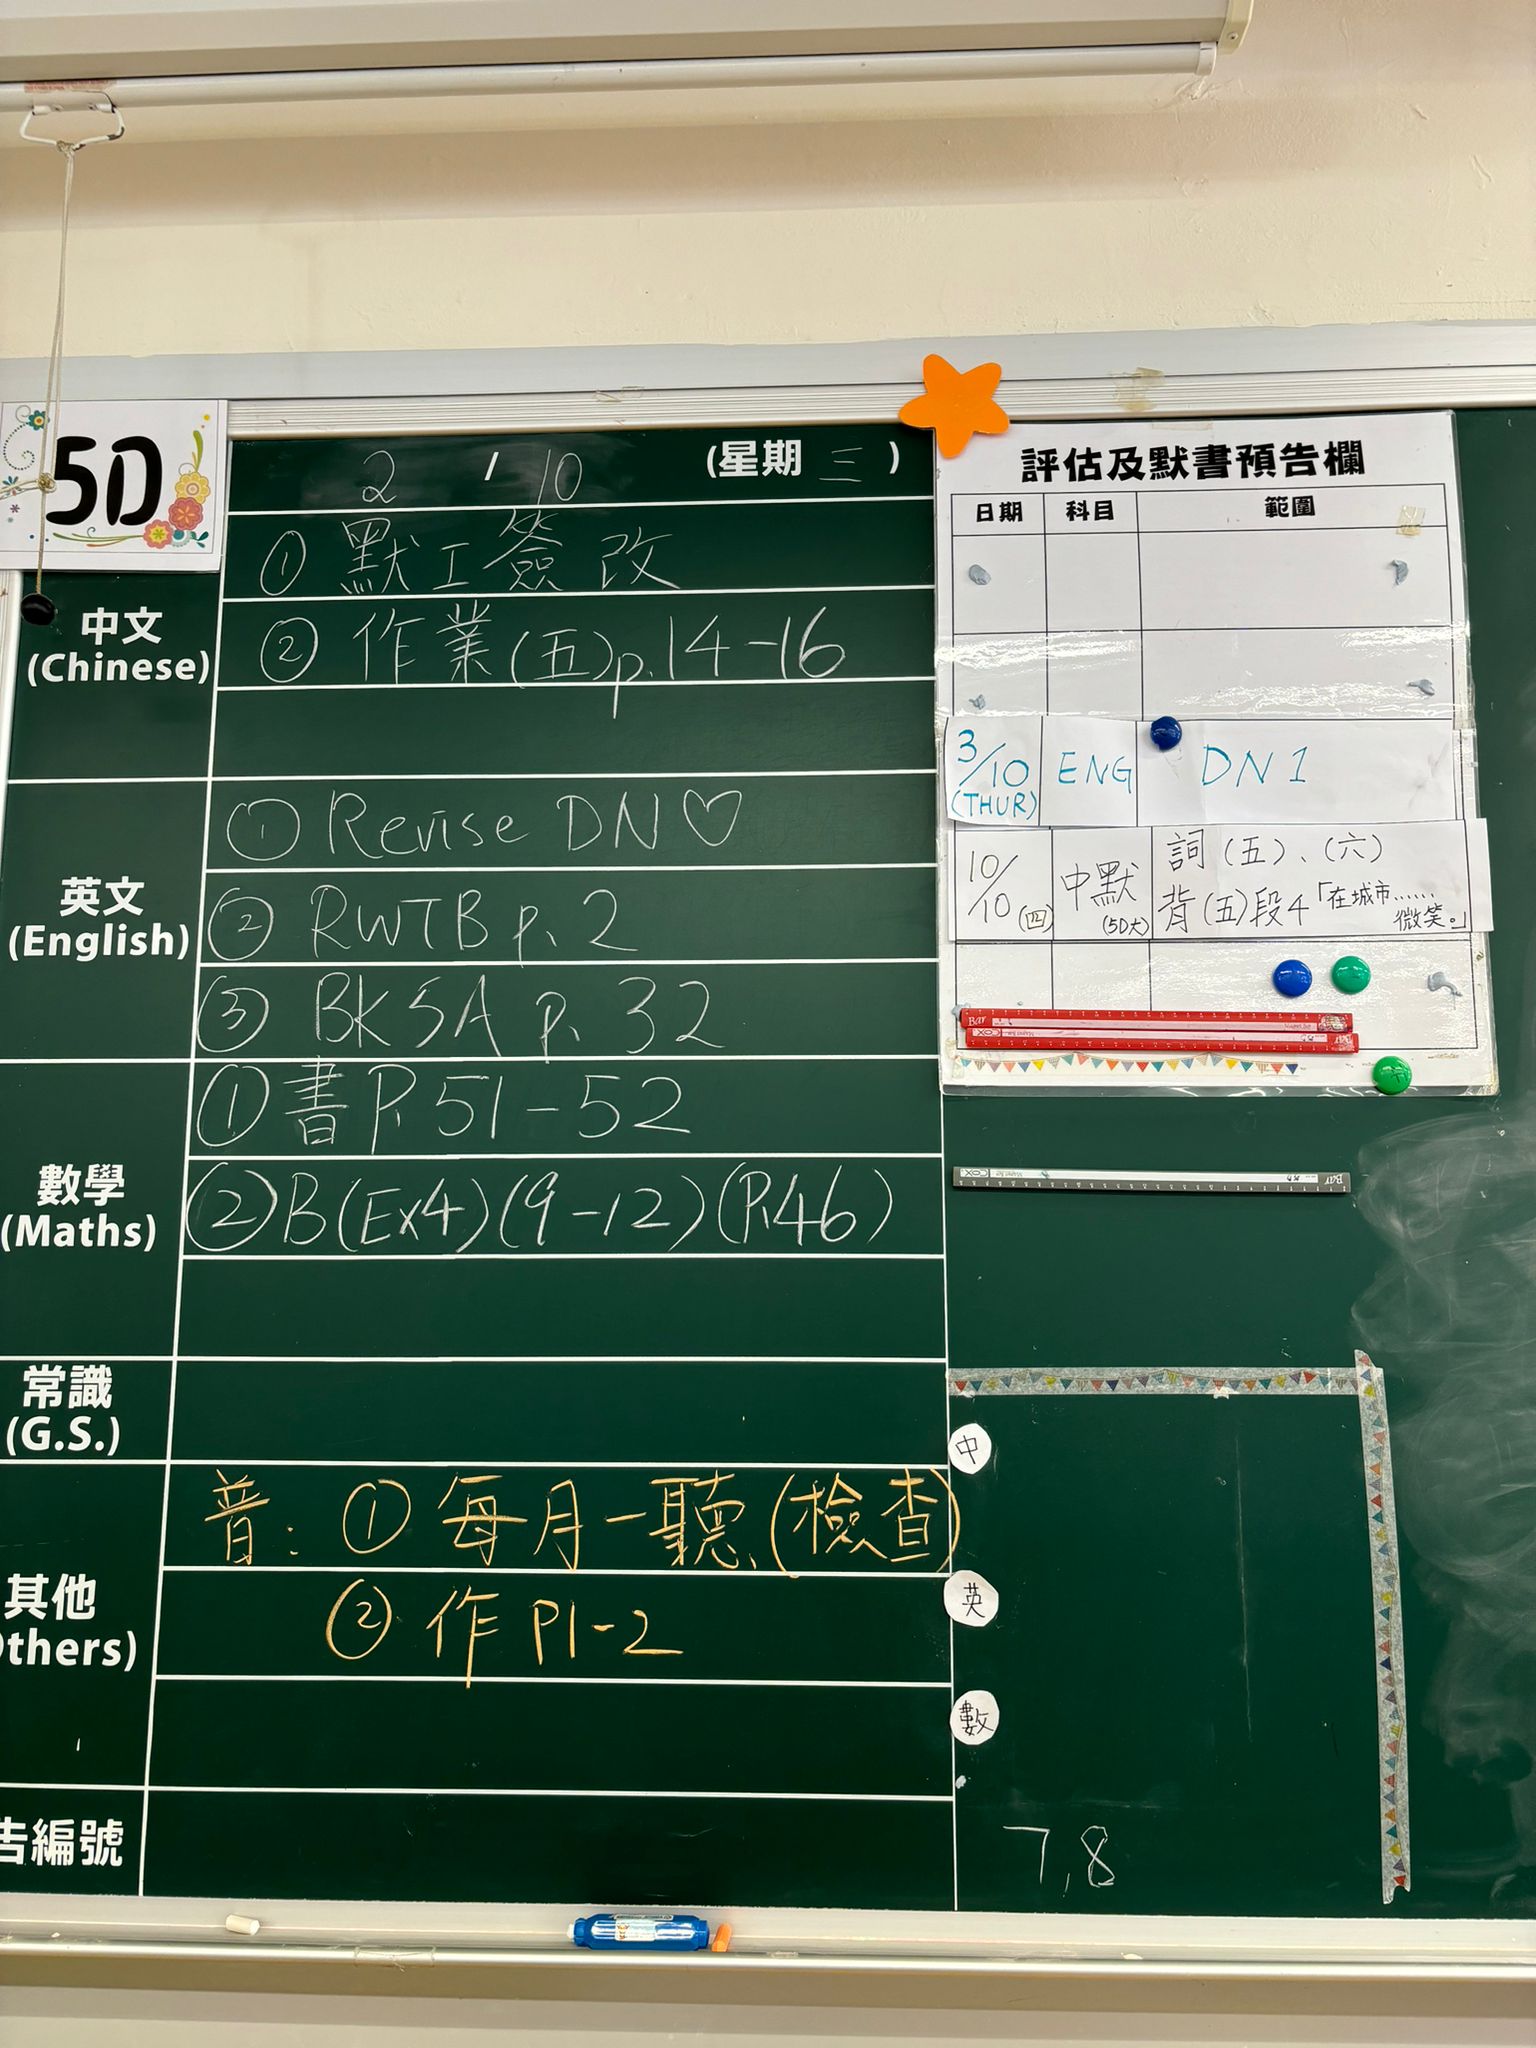 5D
2 / 10 (星期三)
中文
(Chinese)
① 默工簽改
② 作業(五)p.14-16
英文
(English)
① Revise DN♡
② RWTB p.2
③ BK5A p.32
數學
(Maths)
① 書P.51-52
② B(Ex4)(9-12)(P.46)
常識
(G.S.)
其他
thers)
普：① 每月一聽(檢查)
② 作P1-2
告編號
評估及默書預告欄
日期 科目 範圍
3/10 (THUR) ENG DN 1
10/10 (四) 中默 (5D大) 詞(五)、(六)
背(五)段4「在城市......
微笑。」
中
英
數
7,8